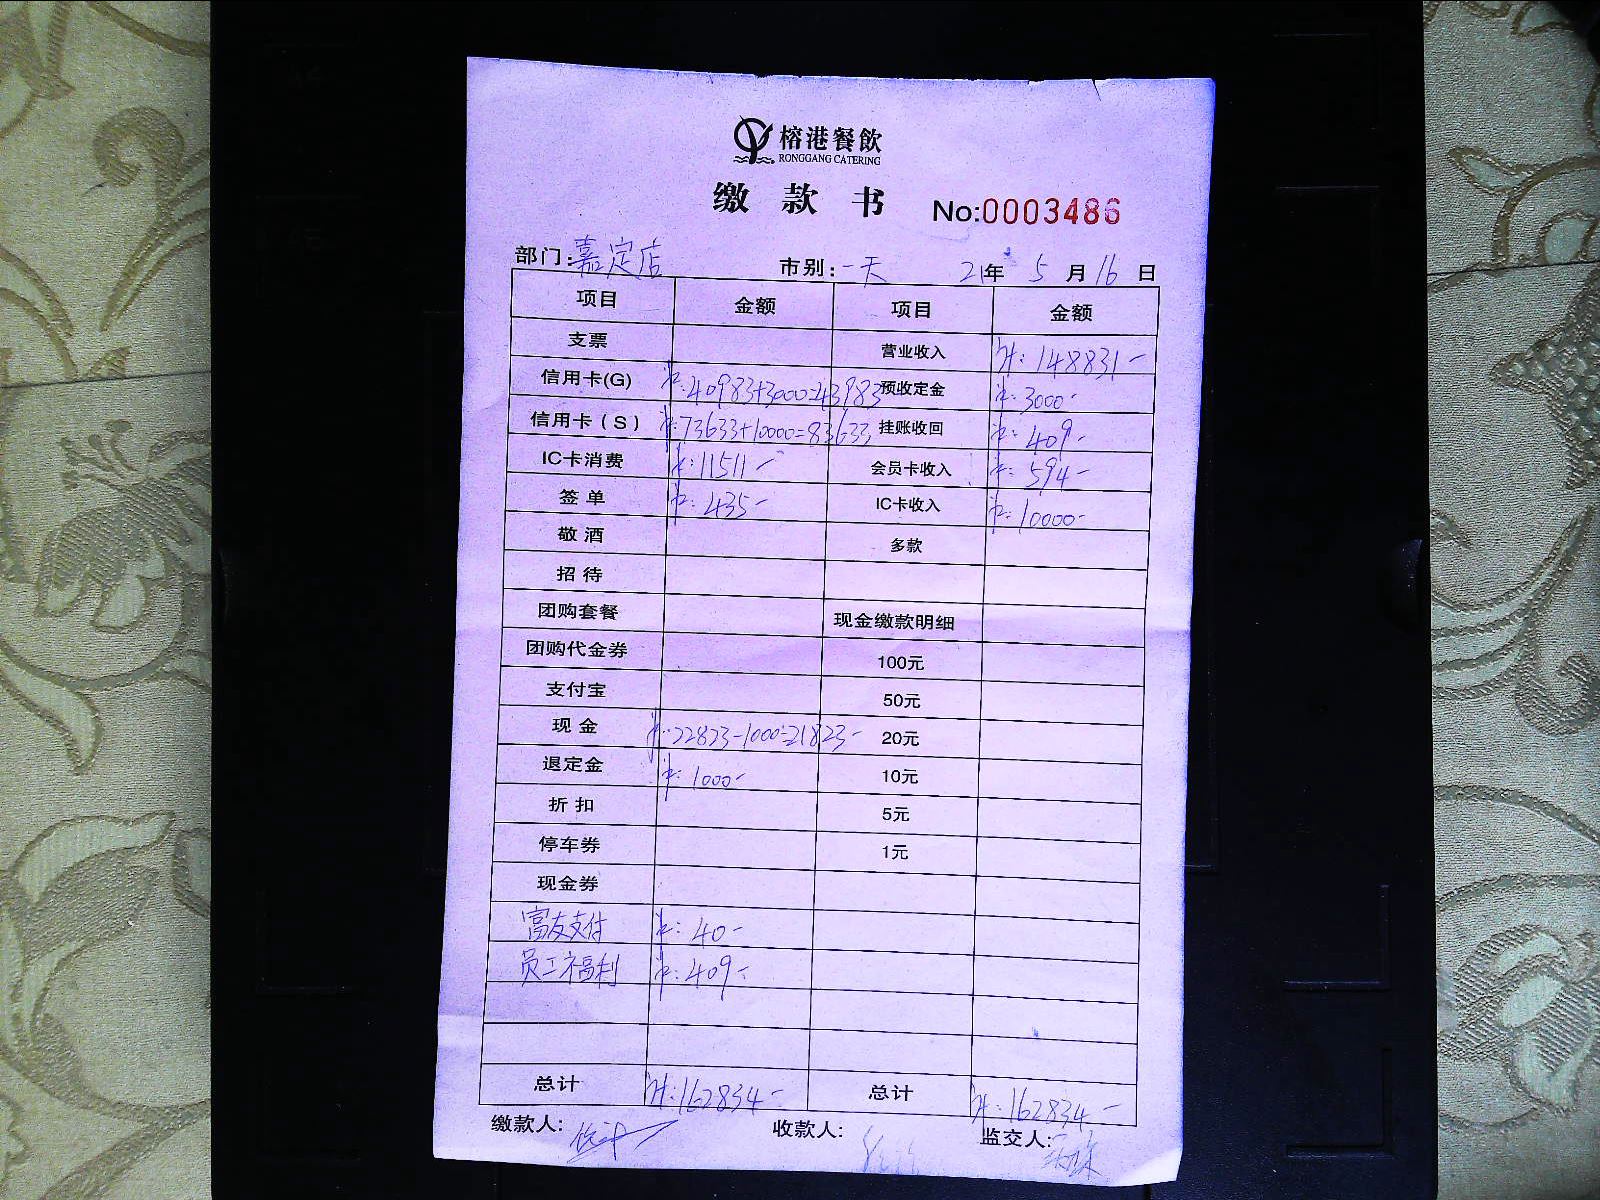 榕港餐飲
RONGGANG CATERING
缴款书 No:0003486
部门:嘉定店 市别:一天 21年 5月16日
项目 金额 项目 金额
支票 营业收入 计:148831-
信用卡(G) ¥:40983+3000=43983 预收定金 ¥:3000-
信用卡(S) ¥:73633+10000=83633 挂账收回 ¥:409-
IC卡消费 ¥:11511- 会员卡收入 ¥:594-
签单 ¥:435- IC卡收入 ¥:10000-
敬酒 多款
招待
团购套餐 现金缴款明细
团购代金券 100元
支付宝 50元
现金 ¥:22823-1000=21823- 20元
退定金 ¥:1000- 10元
折扣 5元
停车券 1元
现金券
富友支付 ¥:40-
员工福利 ¥:409-
总计 计:162834- 总计 计:162834-
缴款人: 收款人: 监交人: